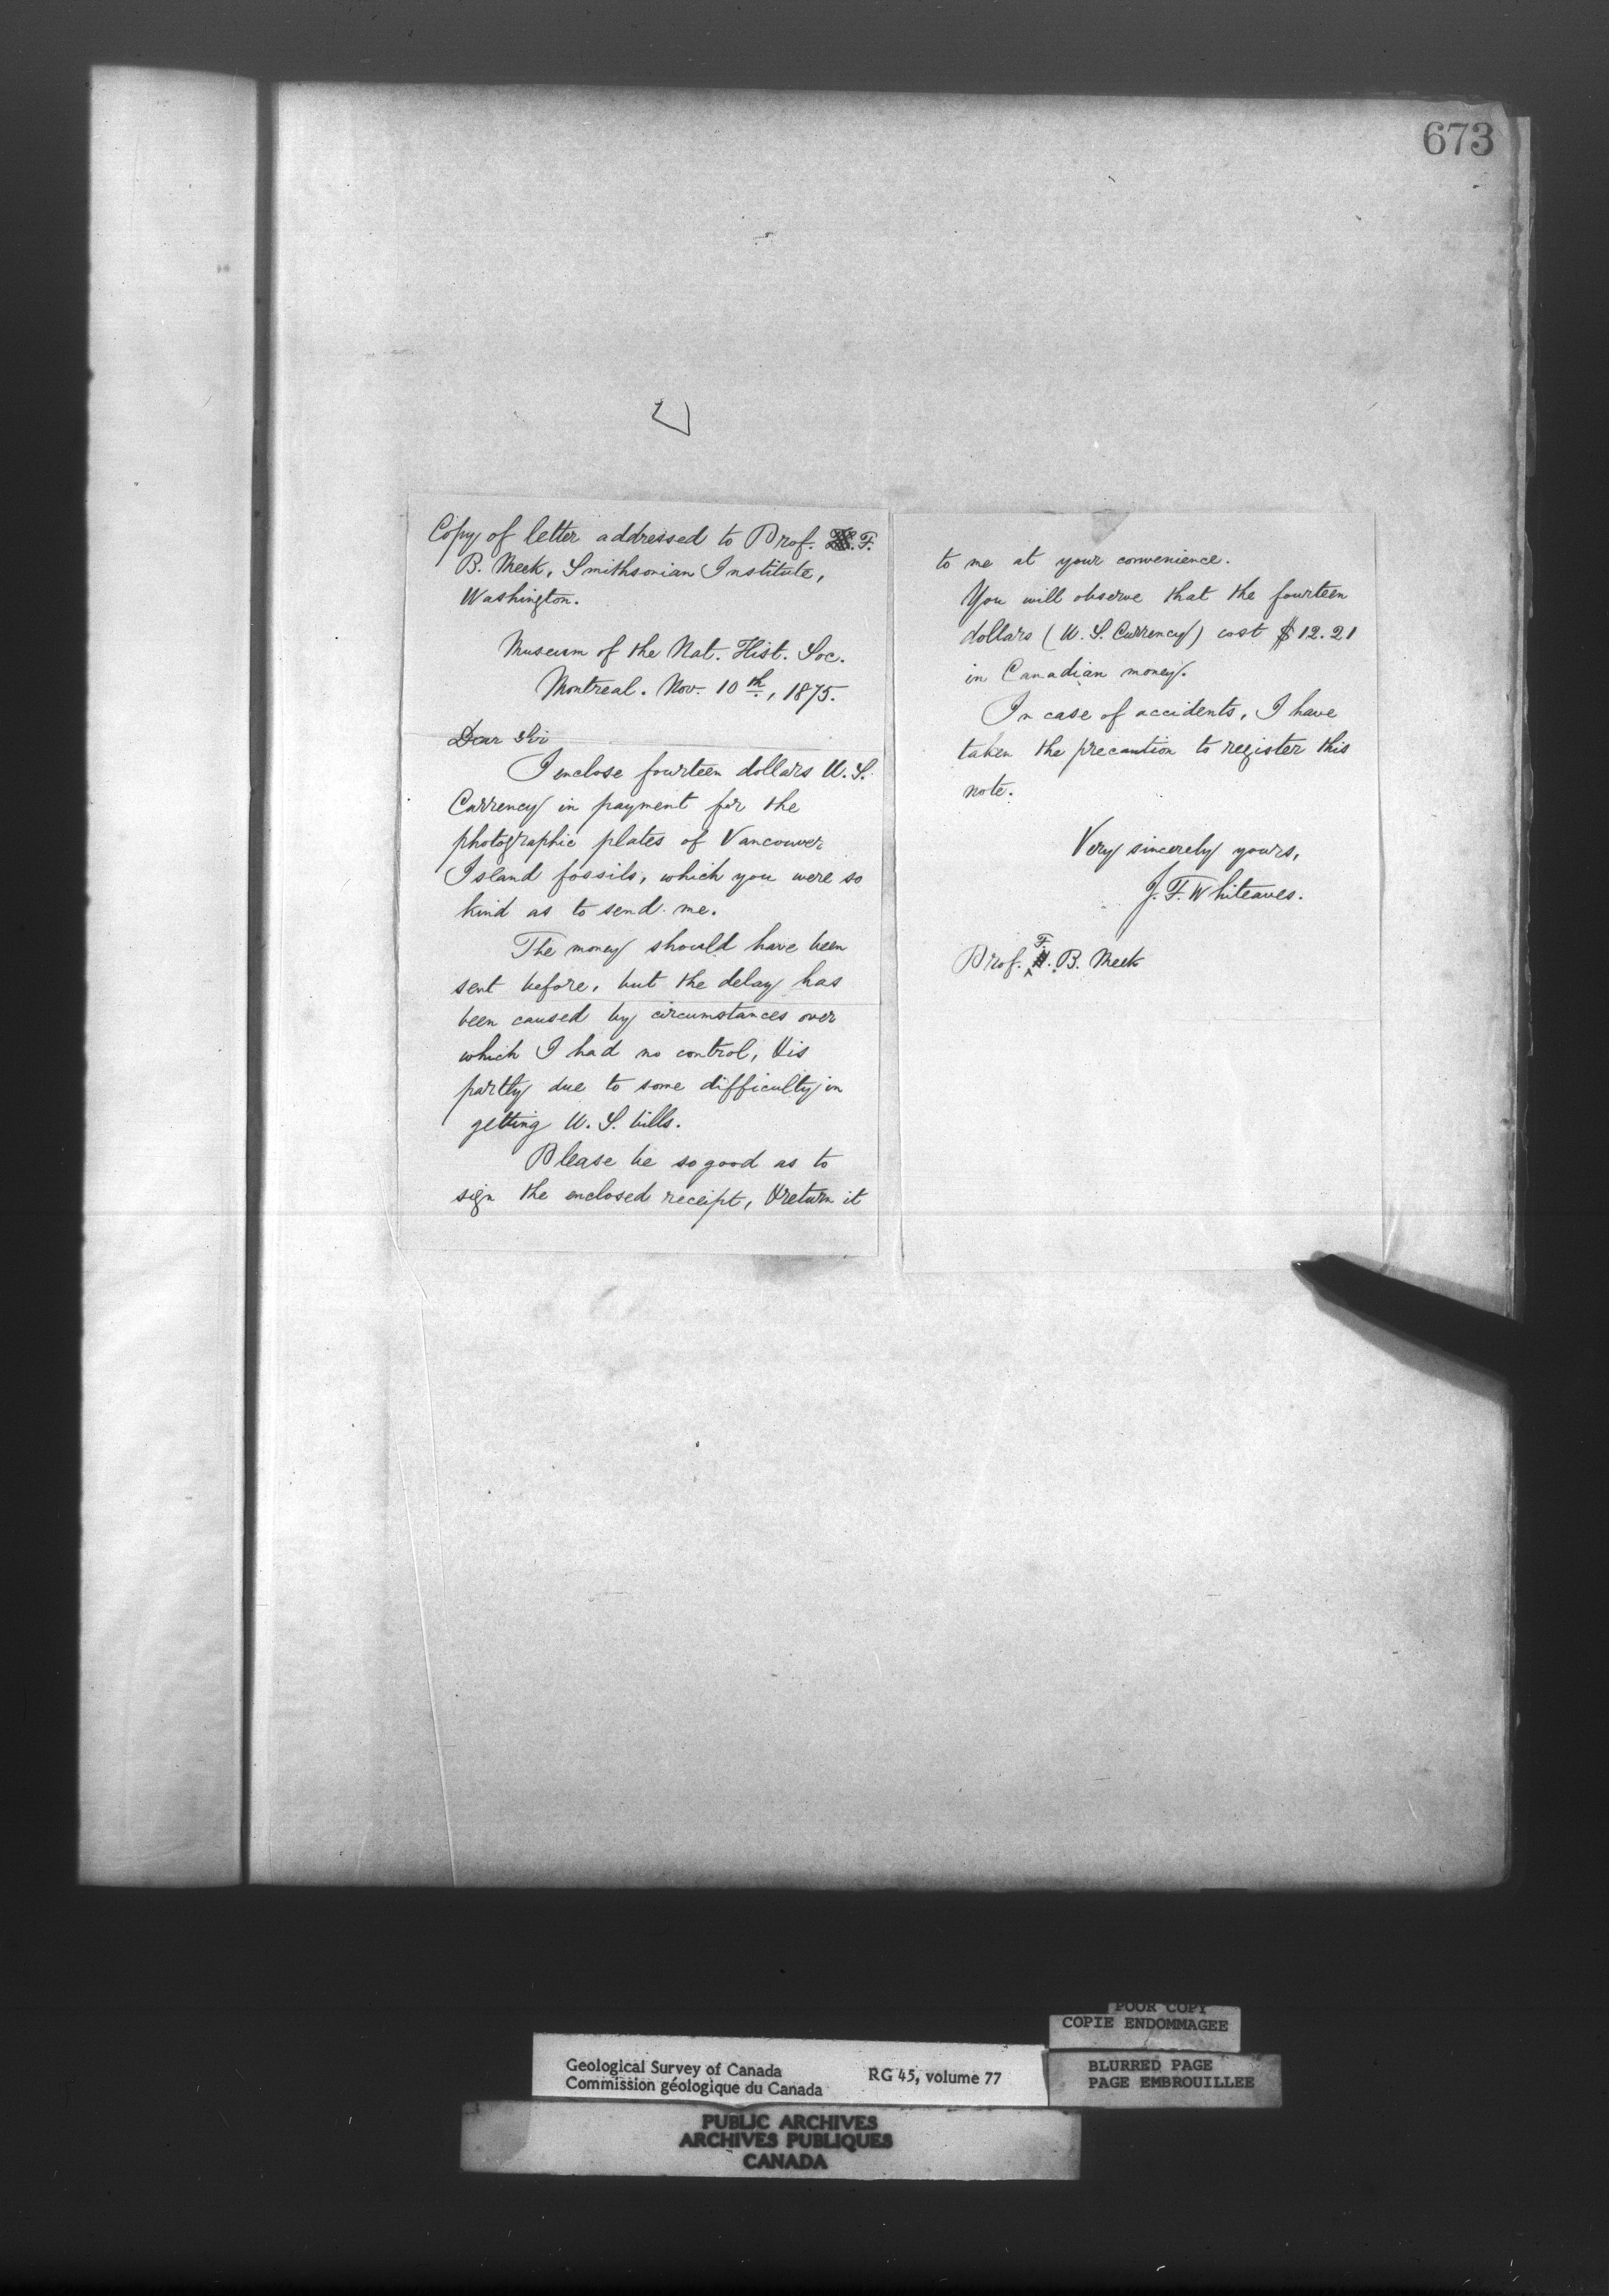 673
Copy of letter addressed to Prof. F.
B. Meek, Smithsonian Institute,
Washington.
Museum of the Nat. Hist. Soc.
Montreal. Nov. 10th, 1875.
Dear Sir
I enclose fourteen dollars U.S.
Currency in payment for the
photographic plates of Vancouver
Island fossils, which you were so
kind as to send me.
The money should have been
sent before, but the delay has
been caused by circumstances over
which I had no control, & is
partly due to some difficulty in
getting U.S. bills.
Please be so good as to
sign the enclosed receipt, & return it
to me at your convenience.
You will observe that the fourteen
dollars (U.S. Currency) cost $12.21
in Canadian money.
In case of accidents, I have
taken the precaution to register this
note.
Very sincerely yours,
J. F. Whiteaves.
Prof. F. B. Meek
POOR COPY
COPIE ENDOMMAGEE
Geological Survey of Canada
Commission géologique du Canada
RG 45, volume 77
BLURRED PAGE
PAGE EMBROUILLEE
PUBLIC ARCHIVES
ARCHIVES PUBLIQUES
CANADA